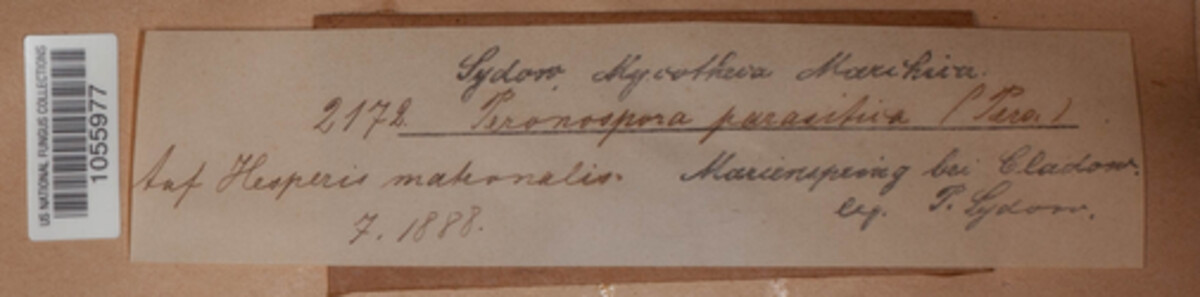 US NATIONAL FUNGUS COLLECTIONS
1055977
Sydow, Mycotheca Marchica.
2172. Peronospora parasitica (Pers.)
Auf Hesperis matronalis. Marienspring bei Cladow.
7. 1888. leg. P. Sydow.